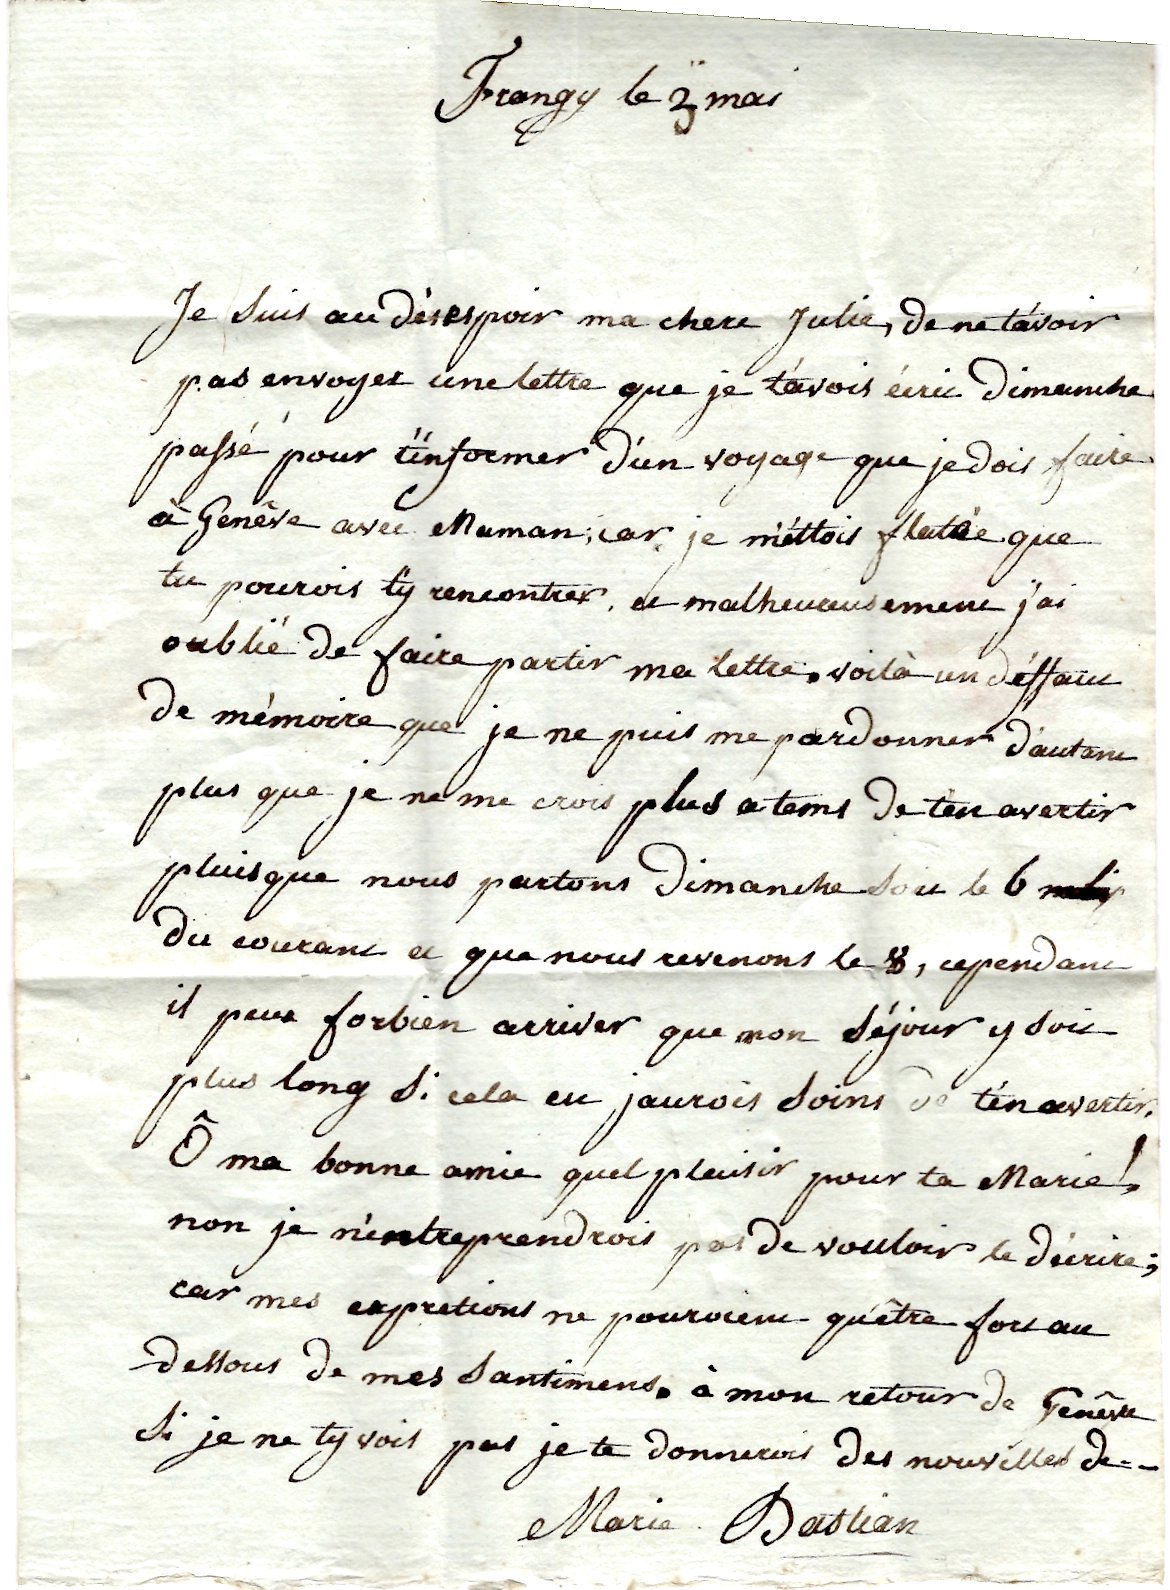 Frangy le 3 mai
Je suis au désespoir ma chere Julie, de ne t'avoir
pas envoyer une lettre que je t'avois écrit dimanche
passé pour t'informer d'un voyage que je dois faire
à Genêve avec Maman, car je m'éttois flatée que
tu pourois t'y rencontrer, et malheureusement j'ai
oublié de faire partir ma lettre. voilà un déffaut
de mémoire que je ne puis me pardonner d'autant
plus que je ne me crois plus a tems de t'en avertir
pluisque nous partons dimanche soit le 6
du courant et que nous revenons le 8, cependant
il peut forbien arriver que mon séjour y soit
plus long si cela eu j'aurois soins de t'en avertir.
Ô ma bonne amie quel plaisir pour ta Marie!
non je n'entreprendrois pas de vouloir le décrire;
car mes expretions ne pouroient qu'être fort au
dessous de mes santimens. à mon retour de Genêve
si je ne t'y vois pas je te donnerois des nouvelles de--
Marie Bastian